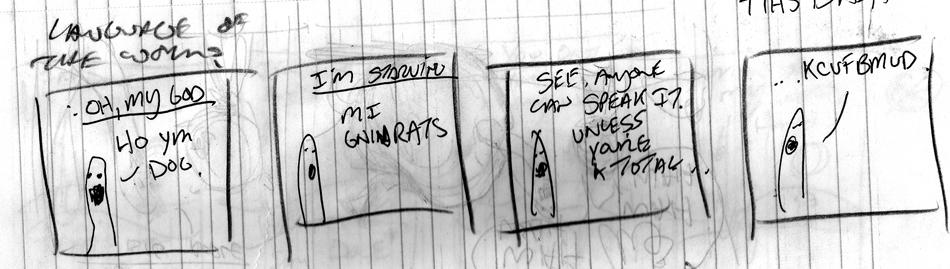 LANGUAGE OF
THE WORM?
OH, MY GOD
HO YM
DOG.
I'M STARVING
MI
GNIVRATS
SEE, ANYONE
CAN SPEAK IT.
UNLESS
YOU'RE
A TOTAL...
...KCUFBMUD.